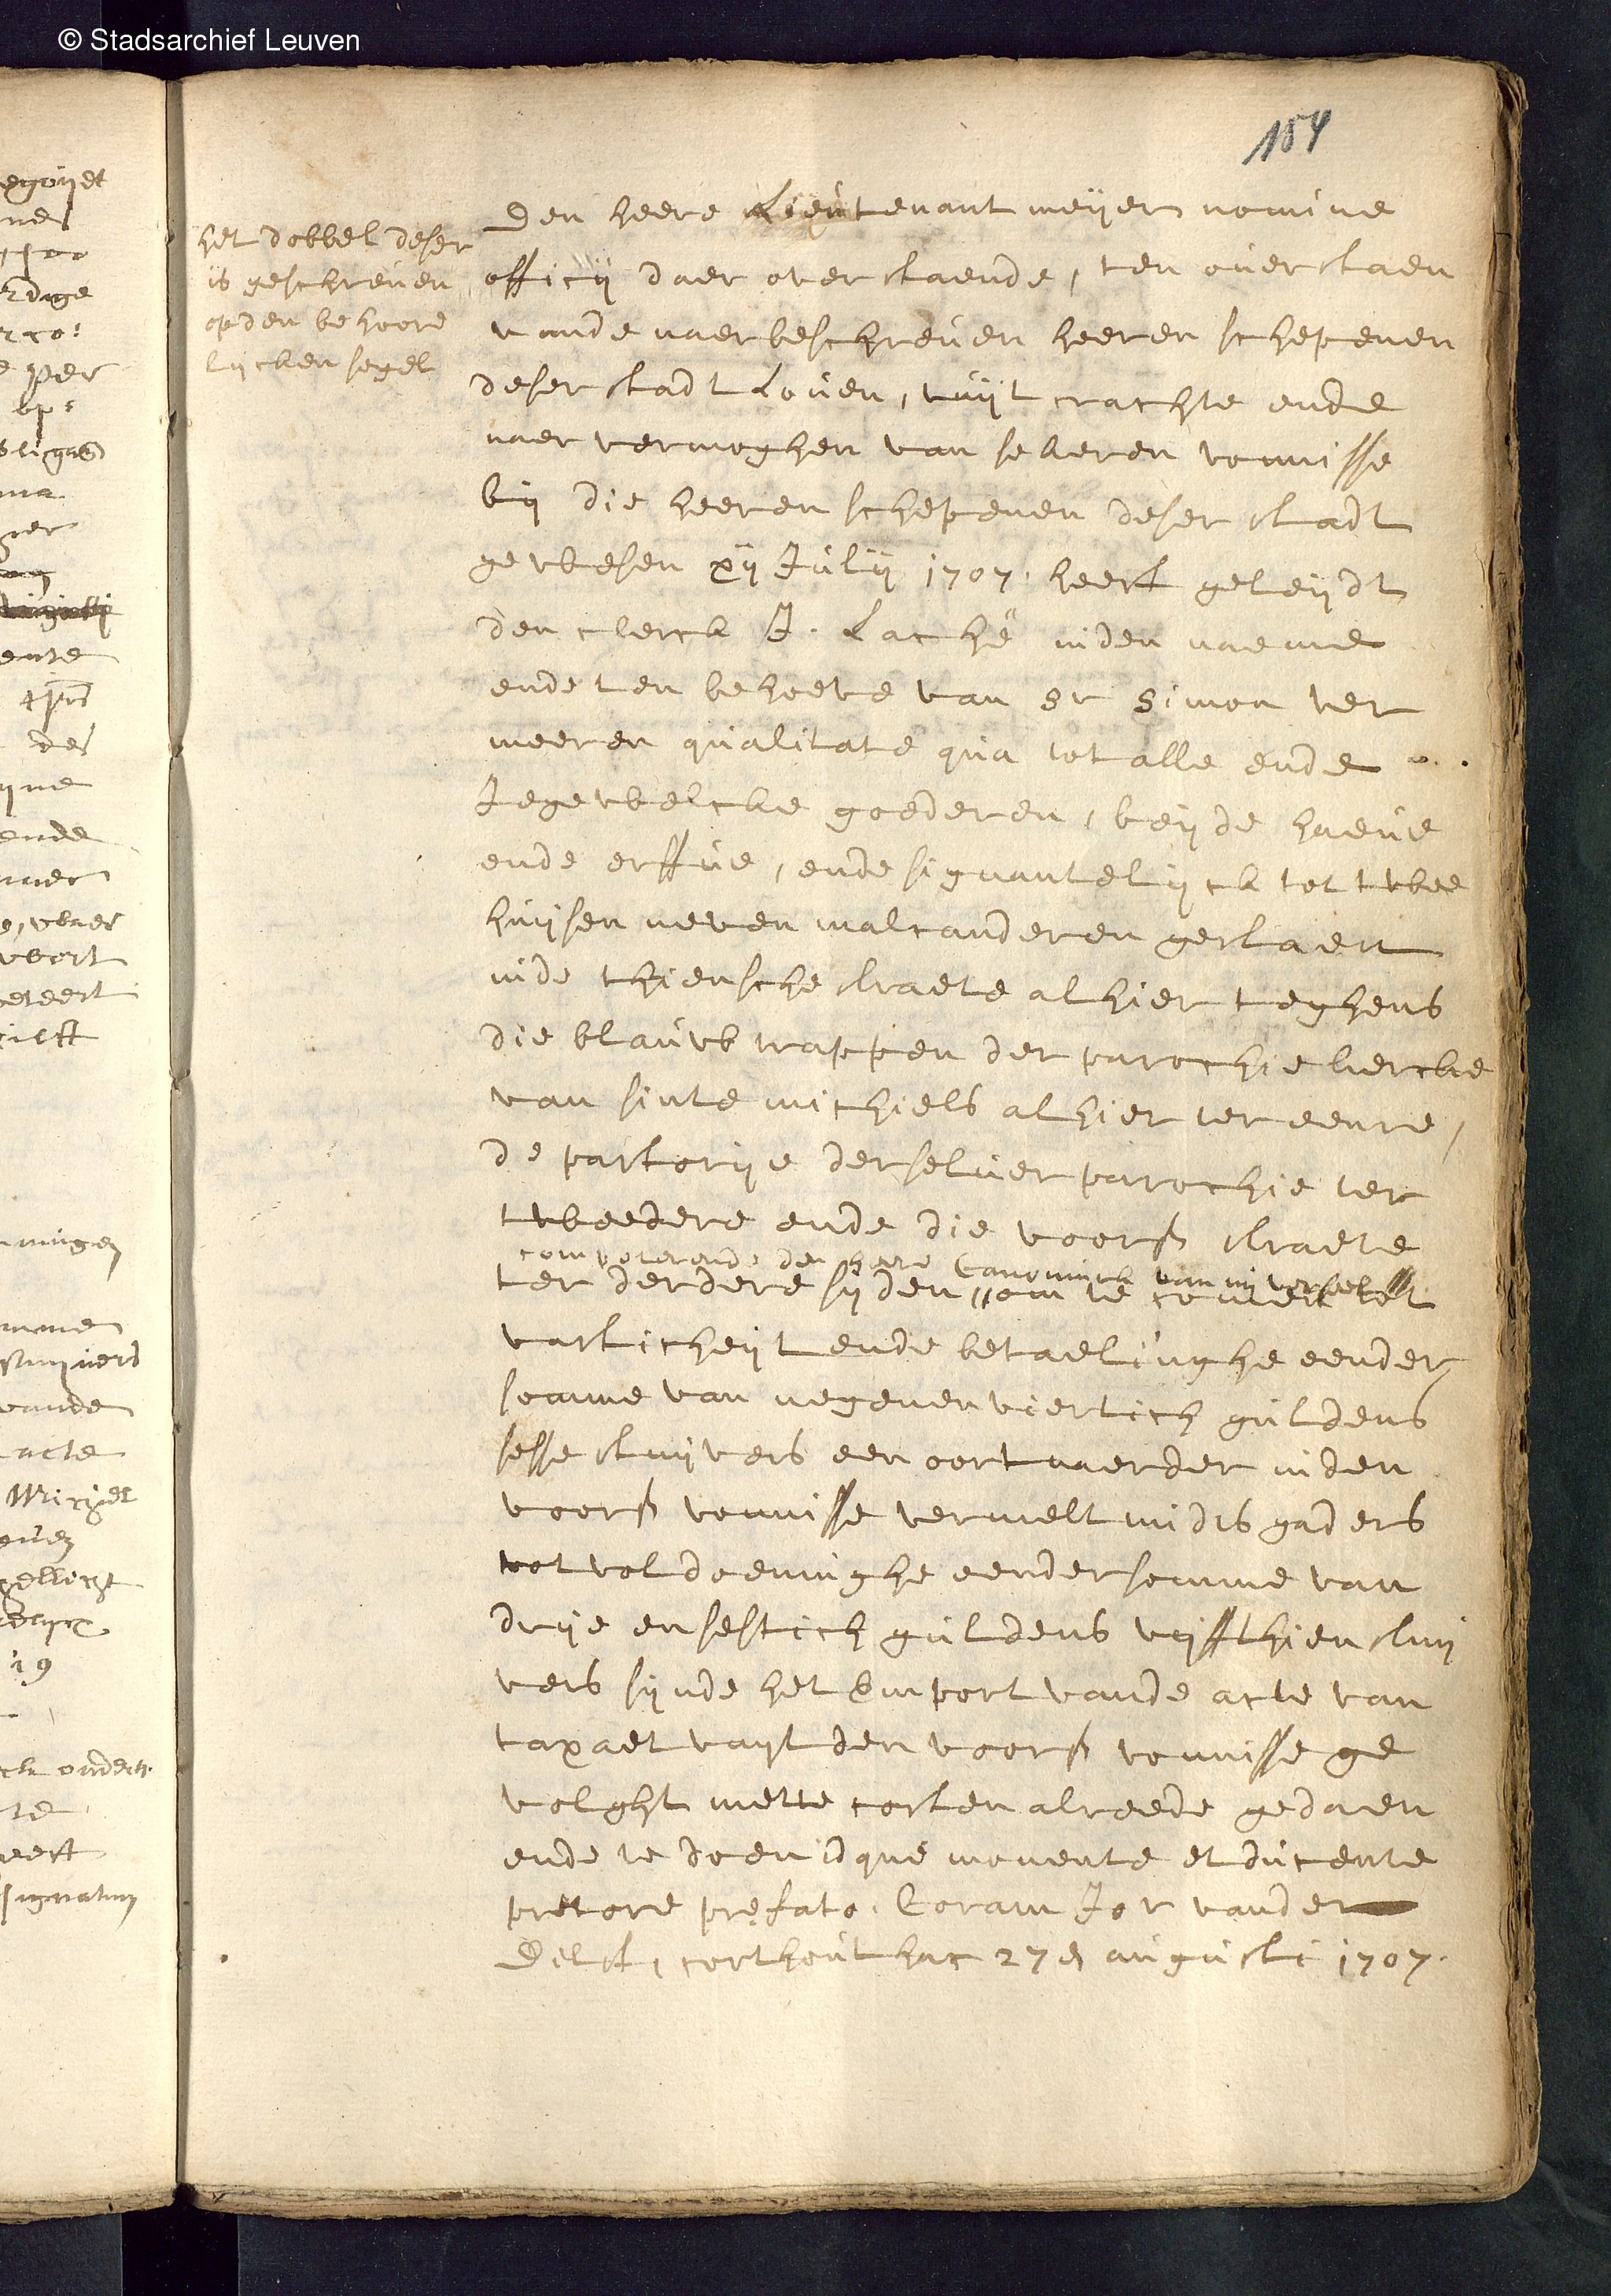 © Stadsarchief Leuven
154
het dobbel deser
is geschreven
op den behoore
lycken segel
Den heere Lieutenant meyer nomine
officij daer over staende, ten overstaen
vande naerbeschreven heeren schepenen
deser stadt Loven, vuijt crachte ende
naer vermoghen van sekeren vonnisse
bij die heeren schepenen deser stadt
gewesen xij Julij 1707. heeft geleijdt
den clerck J. Laché inden naeme
ende ten behoeve van Sr Simon ver
meeren qualitate qua tot alle ende
Jegewelcke goederen, beijde haeve
ende erffve, ende signantelijck tot twee
huijsen neven malcanderen gestaen
inde thiensche straete alhier teghens
die blauw trappen der parochie kercke
van sinte michiels alhier ter eenre,
de pastorije derselver parochie ter
tweedere ende die voors straete
comparerende den heere Canoninck van
ter derdere sijden om te comen tot
vasticheijt ende betaelinghe eender
somme van negenenviertich guldens
sesse stuijvers een oort naerder inden
voors vonnisse vermelt midtsgaders
tot voldoeninghe eender somme van
drije en sestich guldens vijffthien stuij
vers sijnde het Import vande acte van
taxaet vuijt den voors vonnisse ge
volght mette costen alreede gedaen
ende te doen idque monente et ducente
pretore prefato. Coram Jor vander
Delft, corthout hac 27 augusti 1707.